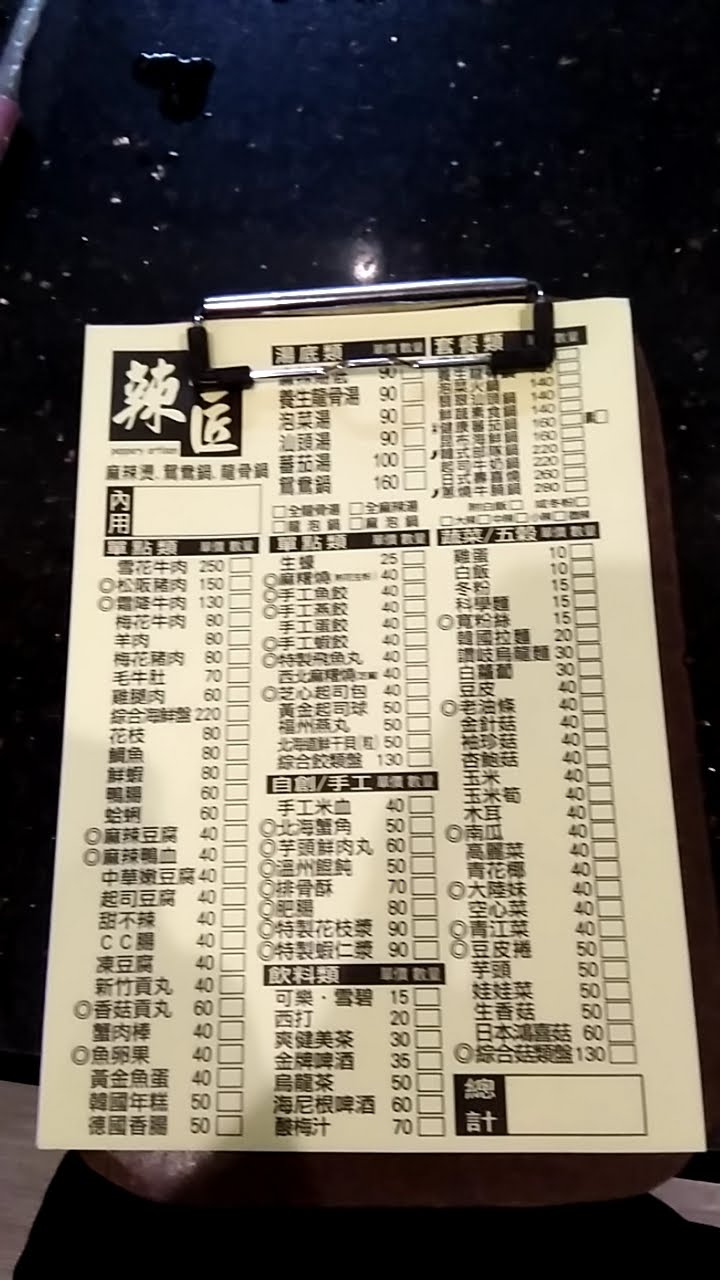 辣匠
麻辣燙.鴛鴦鍋.龍骨鍋
內用
湯底類 單價 數量
90
養生龍骨湯 90
泡菜湯 90
汕頭湯 90
蕃茄湯 100
鴛鴦鍋 160
□全龍骨湯 □全麻辣湯
□龍泡鍋 □麻泡鍋
套餐類 數量
140
泡菜火鍋 140
汕頭鍋 140
鮮蔬素食鍋 140
健康蕃茄鍋 160
昆布海鮮鍋 160
韓式部隊鍋 220
起司牛奶鍋 220
日式壽喜燒 260
280
附白飯□ 或冬粉□
□大辣□中辣□小辣□微辣
單點類 單價 數量
雪花牛肉 250
◎松阪豬肉 150
◎霜降牛肉 130
梅花牛肉 80
羊肉 80
梅花豬肉 80
毛牛肚 70
雞腿肉 60
綜合海鮮盤 220
花枝 80
鯛魚 80
鮮蝦 80
鴨腸 60
蛤蜊 60
◎麻辣豆腐 40
◎麻辣鴨血 40
中華嫩豆腐 40
起司豆腐 40
甜不辣 40
CC腸 40
凍豆腐 40
新竹貢丸 40
◎香菇貢丸 60
蟹肉棒 40
◎魚卵果 40
黃金魚蛋 40
韓國年糕 50
德國香腸 50
單點類 單價 數量
生蠔 25
◎麻糬燒 40
◎手工魚餃 40
◎手工燕餃 40
手工蛋餃 40
◎手工蝦餃 40
◎特製飛魚丸 40
西北麻糬燒 40
◎芝心起司包 40
黃金起司球 50
福州燕丸 50
北海道鮮干貝(粒) 50
綜合餃類盤 130
自創/手工 單價 數量
手工米血 40
◎北海蟹角 50
◎芋頭鮮肉丸 60
◎溫州餛飩 50
◎排骨酥 70
◎肥腸 80
◎特製花枝漿 90
◎特製蝦仁漿 90
飲料類 單價 數量
可樂・雪碧 15
西打 20
爽健美茶 30
金牌啤酒 35
烏龍茶 50
海尼根啤酒 60
酸梅汁 70
蔬菜/五穀 單價 數量
雞蛋 10
白飯 10
冬粉 15
科學麵 15
◎寬粉絲 15
韓國拉麵 20
讚岐烏龍麵 30
白蘿蔔 30
豆皮 40
◎老油條 40
金針菇 40
袖珍菇 40
杏鮑菇 40
玉米 40
玉米筍 40
木耳 40
◎南瓜 40
高麗菜 40
青花椰 40
◎大陸妹 40
空心菜 40
◎青江菜 40
◎豆皮捲 50
芋頭 50
娃娃菜 50
生香菇 50
日本鴻喜菇 60
◎綜合菇類盤 130
總計